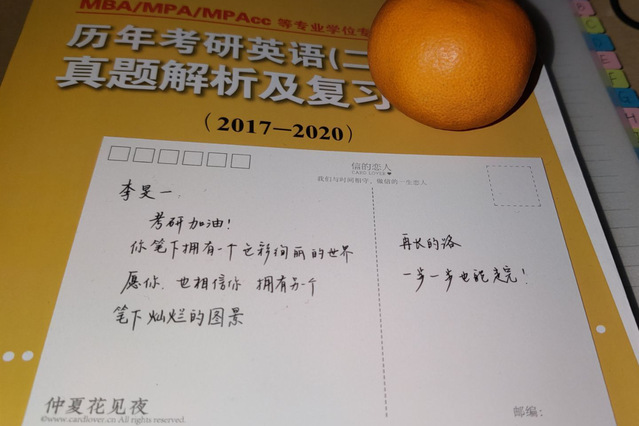 MBA/MPA/MPAcc 等专业学位专
历年考研英语(二
真题解析及复习
(2017—2020)
信的恋人
CARD LOVER
我们与时间相守，做信的一生恋人
李昊一.
考研加油!
你笔下拥有一个色彩绚丽的世界
愿你. 也相信你 拥有另一个
笔下灿烂的图景
再长的路
一步一步也能走完!
仲夏花见夜
©www.cardlover.cn All rights reserved.
邮编:
C
E
G
H